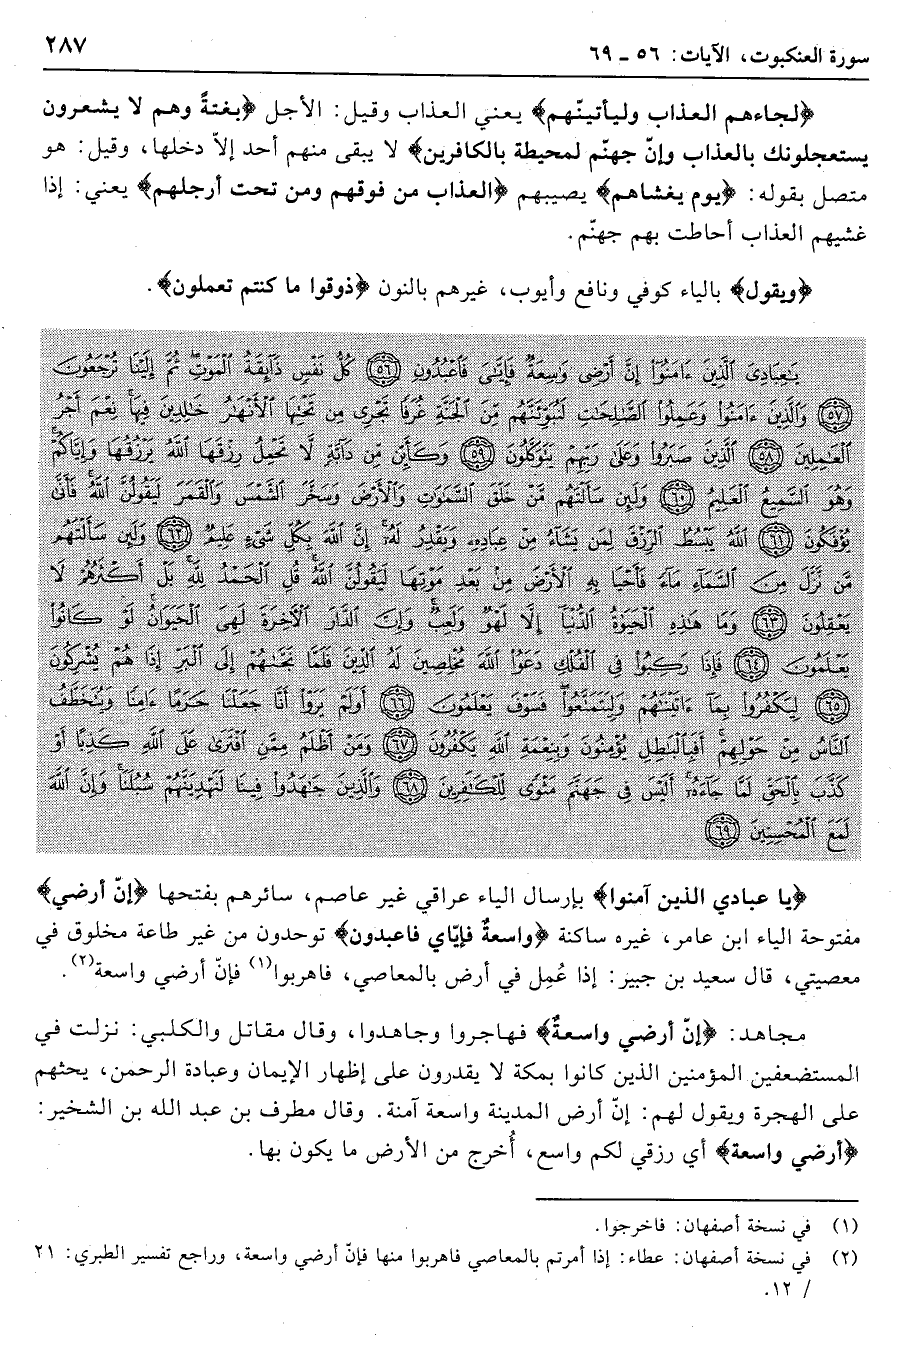 سورة العنكبوت، الآيات: ٥٦ ـ ٦٩
٢٨٧
﴿لجاءهم العذاب وليأتينّهم﴾ يعني العذاب وقيل: الأجل ﴿بغتةً وهم لا يشعرون
يستعجلونك بالعذاب وإنّ جهنّم لمحيطة بالكافرين﴾ لا يبقى منهم أحد إلاّ دخلها، وقيل: هو
متصل بقوله: ﴿يوم يغشاهم﴾ يصيبهم ﴿العذاب من فوقهم ومن تحت أرجلهم﴾ يعني: إذا
غشيهم العذاب أحاطت بهم جهنّم.
﴿ويقول﴾ بالياء كوفي ونافع وأيوب، غيرهم بالنون ﴿ذوقوا ما كنتم تعملون﴾.
يَٰعِبَادِيَ الَّذِينَ ءَامَنُوٓا۟ إِنَّ أَرْضِى وَٰسِعَةٌ فَإِيَّٰىَ فَاعْبُدُونِ ﴿٥٦﴾ كُلُّ نَفْسٍ ذَآئِقَةُ الْمَوْتِ ثُمَّ إِلَيْنَا تُرْجَعُونَ
﴿٥٧﴾ وَالَّذِينَ ءَامَنُوا۟ وَعَمِلُوا۟ الصَّٰلِحَٰتِ لَنُبَوِّئَنَّهُم مِّنَ الْجَنَّةِ غُرَفًا تَجْرِى مِن تَحْتِهَا الْأَنْهَٰرُ خَٰلِدِينَ فِيهَا نِعْمَ أَجْرُ
الْعَٰمِلِينَ ﴿٥٨﴾ الَّذِينَ صَبَرُوا۟ وَعَلَىٰ رَبِّهِمْ يَتَوَكَّلُونَ ﴿٥٩﴾ وَكَأَيِّن مِّن دَآبَّةٍ لَّا تَحْمِلُ رِزْقَهَا اللَّهُ يَرْزُقُهَا وَإِيَّاكُمْ
وَهُوَ السَّمِيعُ الْعَلِيمُ ﴿٦٠﴾ وَلَئِن سَأَلْتَهُم مَّنْ خَلَقَ السَّمَٰوَٰتِ وَالْأَرْضَ وَسَخَّرَ الشَّمْسَ وَالْقَمَرَ لَيَقُولُنَّ اللَّهُ فَأَنَّىٰ
يُؤْفَكُونَ ﴿٦١﴾ اللَّهُ يَبْسُطُ الرِّزْقَ لِمَن يَشَآءُ مِنْ عِبَادِهِۦ وَيَقْدِرُ لَهُۥٓ إِنَّ اللَّهَ بِكُلِّ شَىْءٍ عَلِيمٌ ﴿٦٢﴾ وَلَئِن سَأَلْتَهُم
مَّن نَّزَّلَ مِنَ السَّمَآءِ مَآءً فَأَحْيَا بِهِ الْأَرْضَ مِنۢ بَعْدِ مَوْتِهَا لَيَقُولُنَّ اللَّهُ قُلِ الْحَمْدُ لِلَّهِ بَلْ أَكْثَرُهُمْ لَا
يَعْقِلُونَ ﴿٦٣﴾ وَمَا هَٰذِهِ الْحَيَوٰةُ الدُّنْيَآ إِلَّا لَهْوٌ وَلَعِبٌ وَإِنَّ الدَّارَ الْأَخِرَةَ لَهِىَ الْحَيَوَانُ لَوْ كَانُوا۟
يَعْلَمُونَ ﴿٦٤﴾ فَإِذَا رَكِبُوا۟ فِى الْفُلْكِ دَعَوُا۟ اللَّهَ مُخْلِصِينَ لَهُ الدِّينَ فَلَمَّا نَجَّىٰهُمْ إِلَى الْبَرِّ إِذَا هُمْ يُشْرِكُونَ
﴿٦٥﴾ لِيَكْفُرُوا۟ بِمَآ ءَاتَيْنَٰهُمْ وَلِيَتَمَتَّعُوا۟ فَسَوْفَ يَعْلَمُونَ ﴿٦٦﴾ أَوَلَمْ يَرَوْا۟ أَنَّا جَعَلْنَا حَرَمًا ءَامِنًا وَيُتَخَطَّفُ
النَّاسُ مِنْ حَوْلِهِمْ أَفَبِالْبَٰطِلِ يُؤْمِنُونَ وَبِنِعْمَةِ اللَّهِ يَكْفُرُونَ ﴿٦٧﴾ وَمَنْ أَظْلَمُ مِمَّنِ افْتَرَىٰ عَلَى اللَّهِ كَذِبًا أَوْ
كَذَّبَ بِالْحَقِّ لَمَّا جَآءَهُۥٓ أَلَيْسَ فِى جَهَنَّمَ مَثْوًى لِّلْكَٰفِرِينَ ﴿٦٨﴾ وَالَّذِينَ جَٰهَدُوا۟ فِينَا لَنَهْدِيَنَّهُمْ سُبُلَنَا وَإِنَّ اللَّهَ
لَمَعَ الْمُحْسِنِينَ ﴿٦٩﴾
﴿يا عبادي الذين آمنوا﴾ بإرسال الياء عراقي غير عاصم، سائرهم بفتحها ﴿إنّ أرضي﴾
مفتوحة الياء ابن عامر، غيره ساكنة ﴿واسعةٌ فإيّاي فاعبدون﴾ توحدون من غير طاعة مخلوق في
معصيتي، قال سعيد بن جبير: إذا عُمِل في أرض بالمعاصي، فاهربوا(١) فإنّ أرضي واسعة(٢).
مجاهد: ﴿إنّ أرضي واسعةٌ﴾ فهاجروا وجاهدوا، وقال مقاتل والكلبي: نزلت في
المستضعفين المؤمنين الذين كانوا بمكة لا يقدرون على إظهار الإيمان وعبادة الرحمن، يحثهم
على الهجرة ويقول لهم: إنّ أرض المدينة واسعة آمنة. وقال مطرف بن عبد الله بن الشخير:
﴿أرضي واسعة﴾ أي رزقي لكم واسع، أُخرج من الأرض ما يكون بها.
(١) في نسخة أصفهان: فاخرجوا.
(٢) في نسخة أصفهان: عطاء: إذا أمرتم بالمعاصي فاهربوا منها فإنّ أرضي واسعة، وراجع تفسير الطبري: ٢١
/ ١٢.